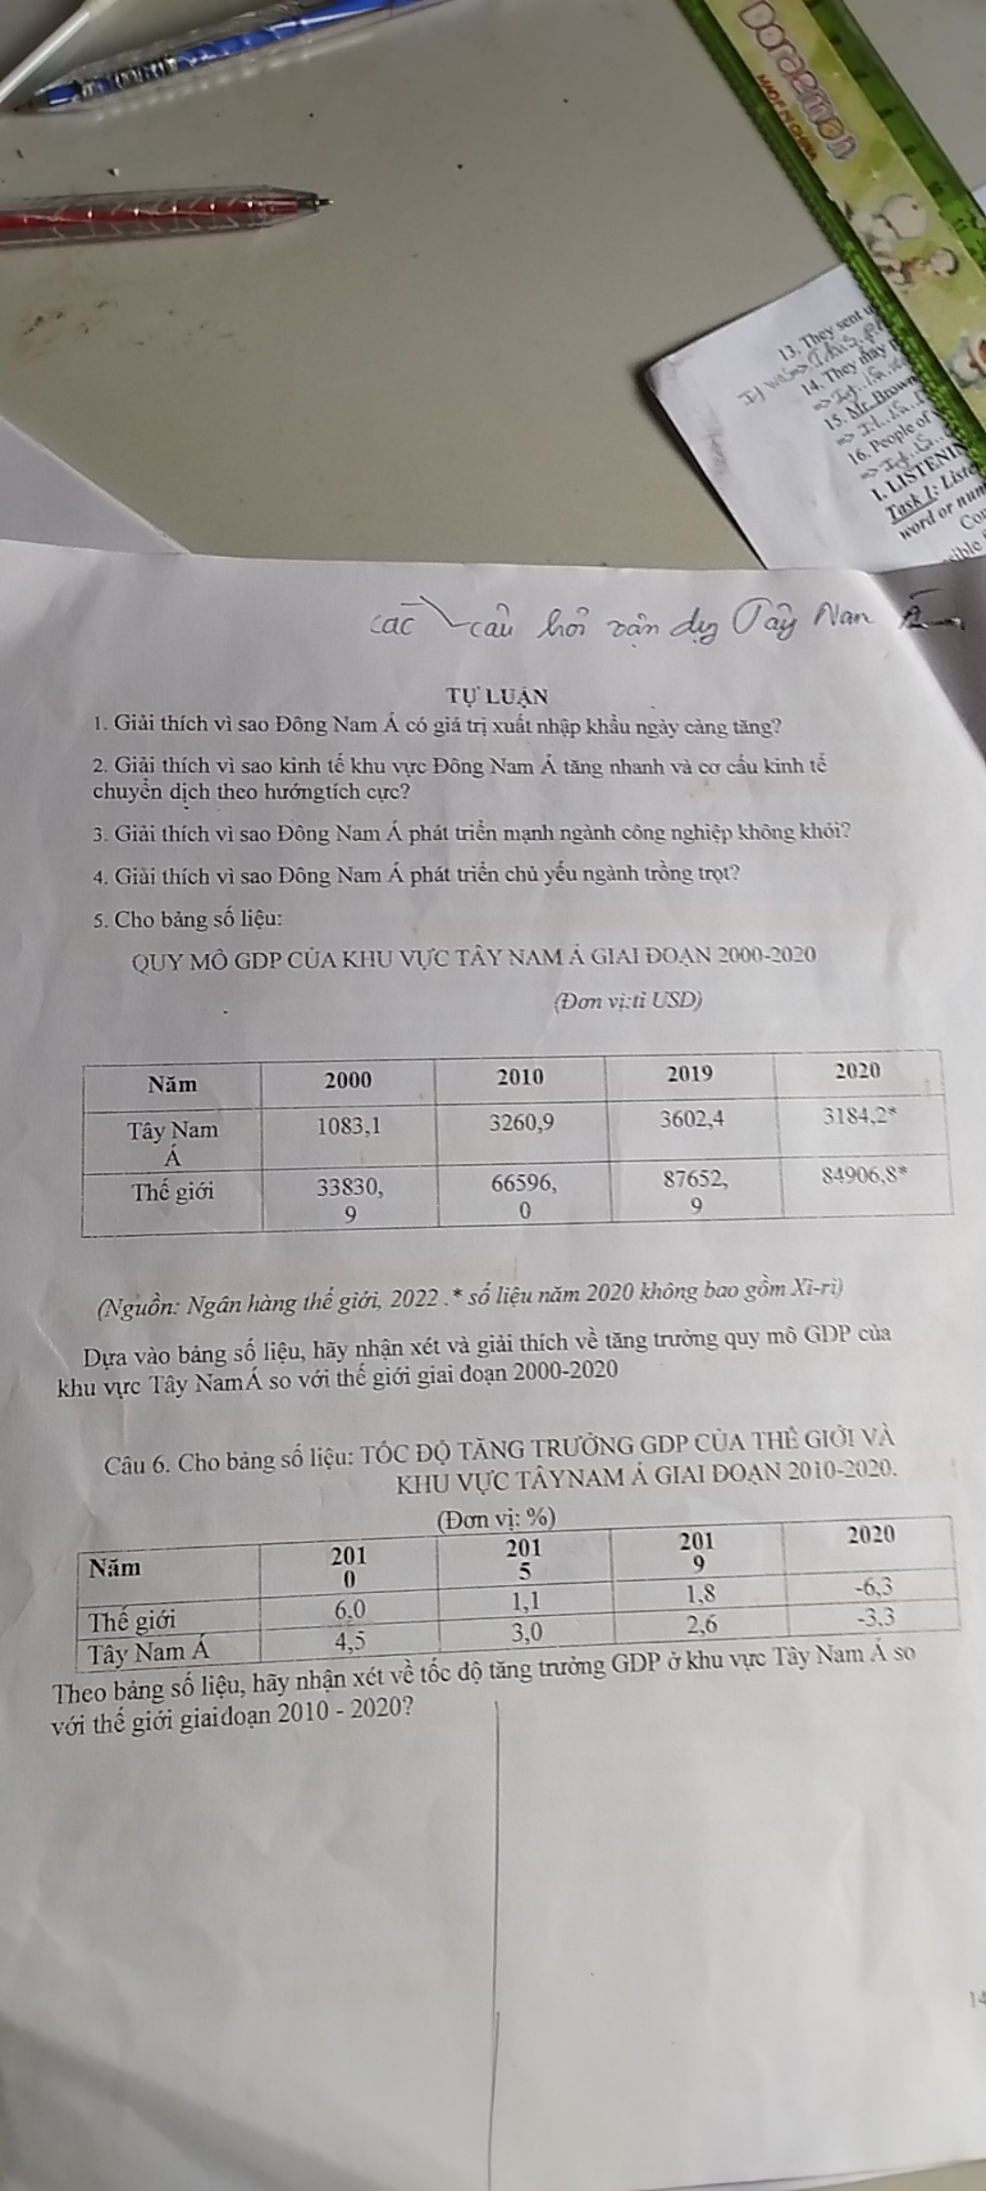 Doraemon
MADE IN CHINA
13. They sent
14. They may
15. Mr. Brown
16. People of
I. LISTENIN
Task 1: Liste
word or num
các câu hỏi vận dụng Tây Nam Á
TỰ LUẬN
1. Giải thích vì sao Đông Nam Á có giá trị xuất nhập khẩu ngày càng tăng?
2. Giải thích vì sao kinh tế khu vực Đông Nam Á tăng nhanh và cơ cấu kinh tế
chuyển dịch theo hướngtích cực?
3. Giải thích vì sao Đông Nam Á phát triển mạnh ngành công nghiệp không khói?
4. Giải thích vì sao Đông Nam Á phát triển chủ yếu ngành trồng trọt?
5. Cho bảng số liệu:
QUY MÔ GDP CỦA KHU VỰC TÂY NAM Á GIAI ĐOẠN 2000-2020
(Đơn vị:tỉ USD)
Năm 2000 2010 2019 2020
Tây Nam 1083,1 3260,9 3602,4 3184,2*
Á
Thế giới 33830, 66596, 87652, 84906,8*
9 0 9
(Nguồn: Ngân hàng thế giới, 2022 .* số liệu năm 2020 không bao gồm Xi-ri)
Dựa vào bảng số liệu, hãy nhận xét và giải thích về tăng trưởng quy mô GDP của
khu vực Tây NamÁ so với thế giới giai đoạn 2000-2020
Câu 6. Cho bảng số liệu: TỐC ĐỘ TĂNG TRƯỞNG GDP CỦA THẾ GIỚI VÀ
KHU VỰC TÂYNAM Á GIAI ĐOẠN 2010-2020.
(Đơn vị: %)
Năm 201 201 201 2020
0 5 9
Thế giới 6,0 1,1 1,8 -6,3
Tây Nam Á 4,5 3,0 2,6 -3,3
Theo bảng số liệu, hãy nhận xét về tốc độ tăng trưởng GDP ở khu vực Tây Nam Á so
với thế giới giaiđoạn 2010 - 2020?
14